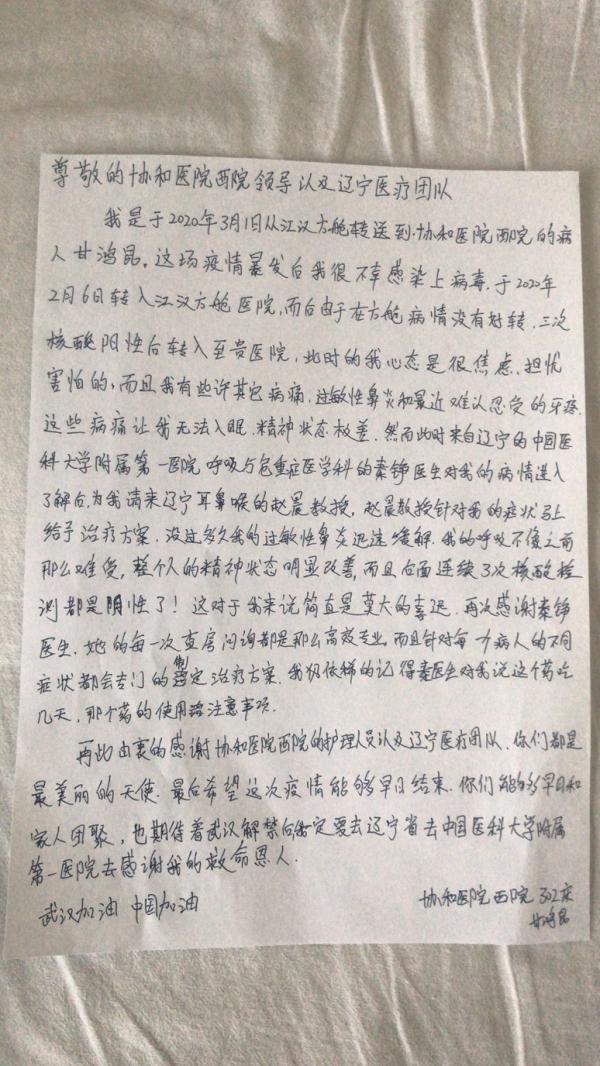 尊敬的协和医院西院领导以及辽宁医疗团队
我是于2020年3月1日从江汉方舱转送到协和医院西院的病
人甘鸿昆。这场疫情暴发后我很不幸感染上病毒,于2020年
2月6日转入江汉方舱医院,而后由于在方舱病情没有好转,三次
核酸阳性后转入至贵医院,此时的我心态是很焦虑、担忧
害怕的,而且我有些许其它病痛,过敏性鼻炎和最近难认忍受的牙疼.
这些病痛让我无法入眠.精神状态极差.然而此时来自辽宁的中国医
科大学附属第一医院呼吸与危重症医学科的秦铮医生对我的病情进入
了解后,为我请来辽宁耳鼻喉的赵晨教授,赵晨教授针对我的症状马上
给予治疗方案.没过多久我的过敏性鼻炎迅速缓解.我的呼吸不像之前
那么难受,整个人的精神状态明显改善,而且后面连续3次核酸检
测都是阴性了!这对于我来说简直是莫大的喜讯.再次感谢秦铮
医生.她的每一次查房问询都是那么高效专业,而且针对每一个病人的不同
症状都会专门的制定治疗方案.我仍依稀的记得秦医生对我说这个药吃
几天,那个药的使用注意事项.
再此由衷的感谢协和医院西院的护理人员以及辽宁医疗团队.你们都是
最美丽的天使.最后希望这次疫情能够早日结束.你们能够早日和
家人团聚,也期待着武汉解禁后我一定要去辽宁省去中国医科大学附属
第一医院去感谢我的救命恩人.
武汉加油 中国加油
协和医院西院 302床
甘鸿昆